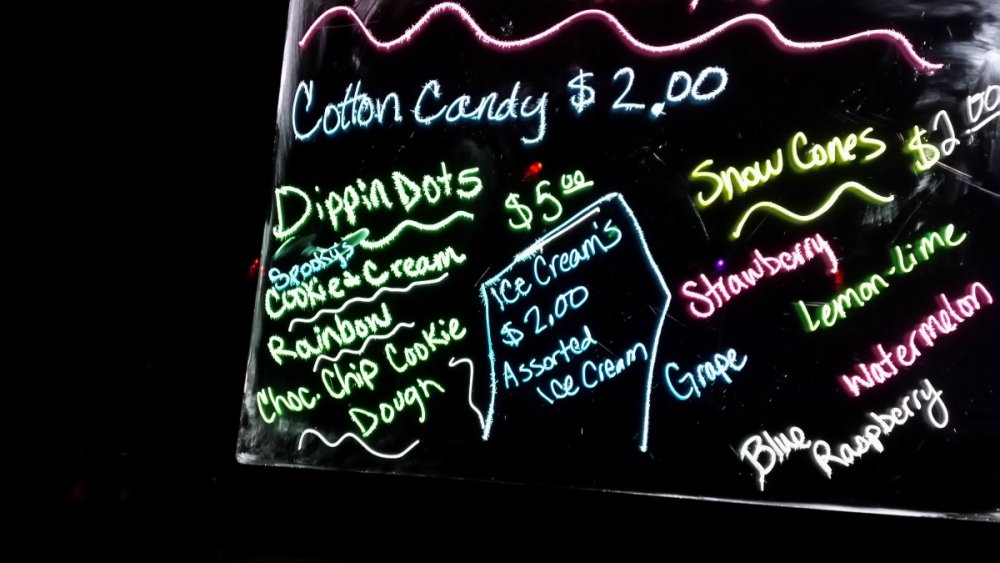 Cotton Candy $2.00
Dippin Dots $5.00
Spooky's
Cookie & Cream
Rainbow
Choc. Chip Cookie
Dough
Ice Cream's
$2.00
Assorted
Ice Cream
Snow Cones $2.00
Strawberry
Lemon-Lime
Watermelon
Grape
Blue
Raspberry